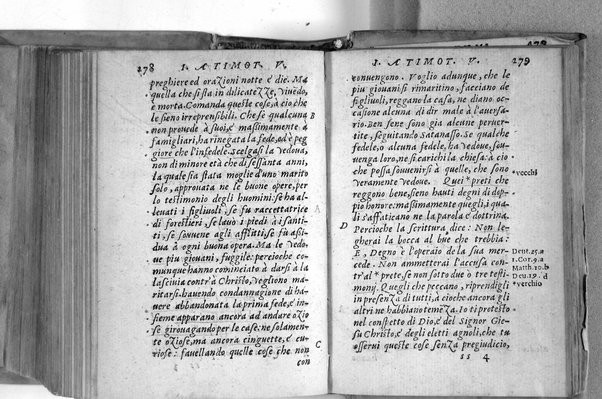 278 I. A TIMOT. V.
preghiere ed orazioni notte e die. Ma
quella che si sta in delicatezze, vivẽdo,
è morta. Comanda queste cose, à cio che
le sieno irreprensibili. Che se qualcuna B
non provede à suoi, e massimamente à
famigliari, ha rinegata la fede, ed è peg
giore che l'infedele. Scelgasi la vedova,
non di minore età che di sessanta anni,
la quale sia stata moglie d'uno marito
solo, approvata ne le buone opere, per
lo testimonio degli huomini: se ha al-
levati i figliuoli, se fu raccettatrice A
di forestieri, se lavo i piedi à i santi-
ti, se sovenne agli afflitti, se fu asi-
dua à ogni buona opera. Ma le vedo-
ve piu giovani, fuggile: percioche co-
munque hanno cominciato à darsi à la
lascivia contr'à Christo, vogliono ma-
ritarsi: havendo condannagione di ha-
vere abbandonata la prima fede, e in-
sieme apparano ancora ad andare ozio
se gironzando per le case: ne solamen-
te oziose, ma ancora cinguette, e cu-
riose: favellando quelle cose che non C
con
I. A TIMOT. V. 279
convengono. Voglio adunque, che le
piu giovani si rimaritino, facciano de
figliuoli, reggano la casa, ne diano oc-
casione alcuna di dir male à l'avversa-
rio. Ben sene sono gia alcune perver-
tite, seguitando Satanasso. Se qualche
fedele, o alcuna fedele, ha vedove, so-
venga loro, ne si carichi la chiesa: à cio
che possa sovenirsi à quelle, che sono
veramente vedove. Quei * preti che *vecchi
reggono bene, sieno hauti degni di dop-
pio honore: massimamente quegli, i qua
li s'affaticano ne la parola e dottrina.
D Percioche la scrittura dice: Non le-
gherai la bocca al bue che trebbia:
E, Degno è l'operaio de la sua mer- Deut. 25.a
cede. Non ammetterai l'accusa con- 1. Cor. 9.a
tr'al * prete, se non sotto due ò tre testi- Matth. 10.b
monj. Quegli che peccano, riprendigli Deu. 19. d
in presenza di tutti, à cioche ancora gli *vecchio
altri ne habbiano temenza. Io ti protesto
nel conspetto di Dio, e del Signor Gie-
su Christo, e degli eletti agnoli, che tu
osservi queste cose senza pregiudicio,
ss 4